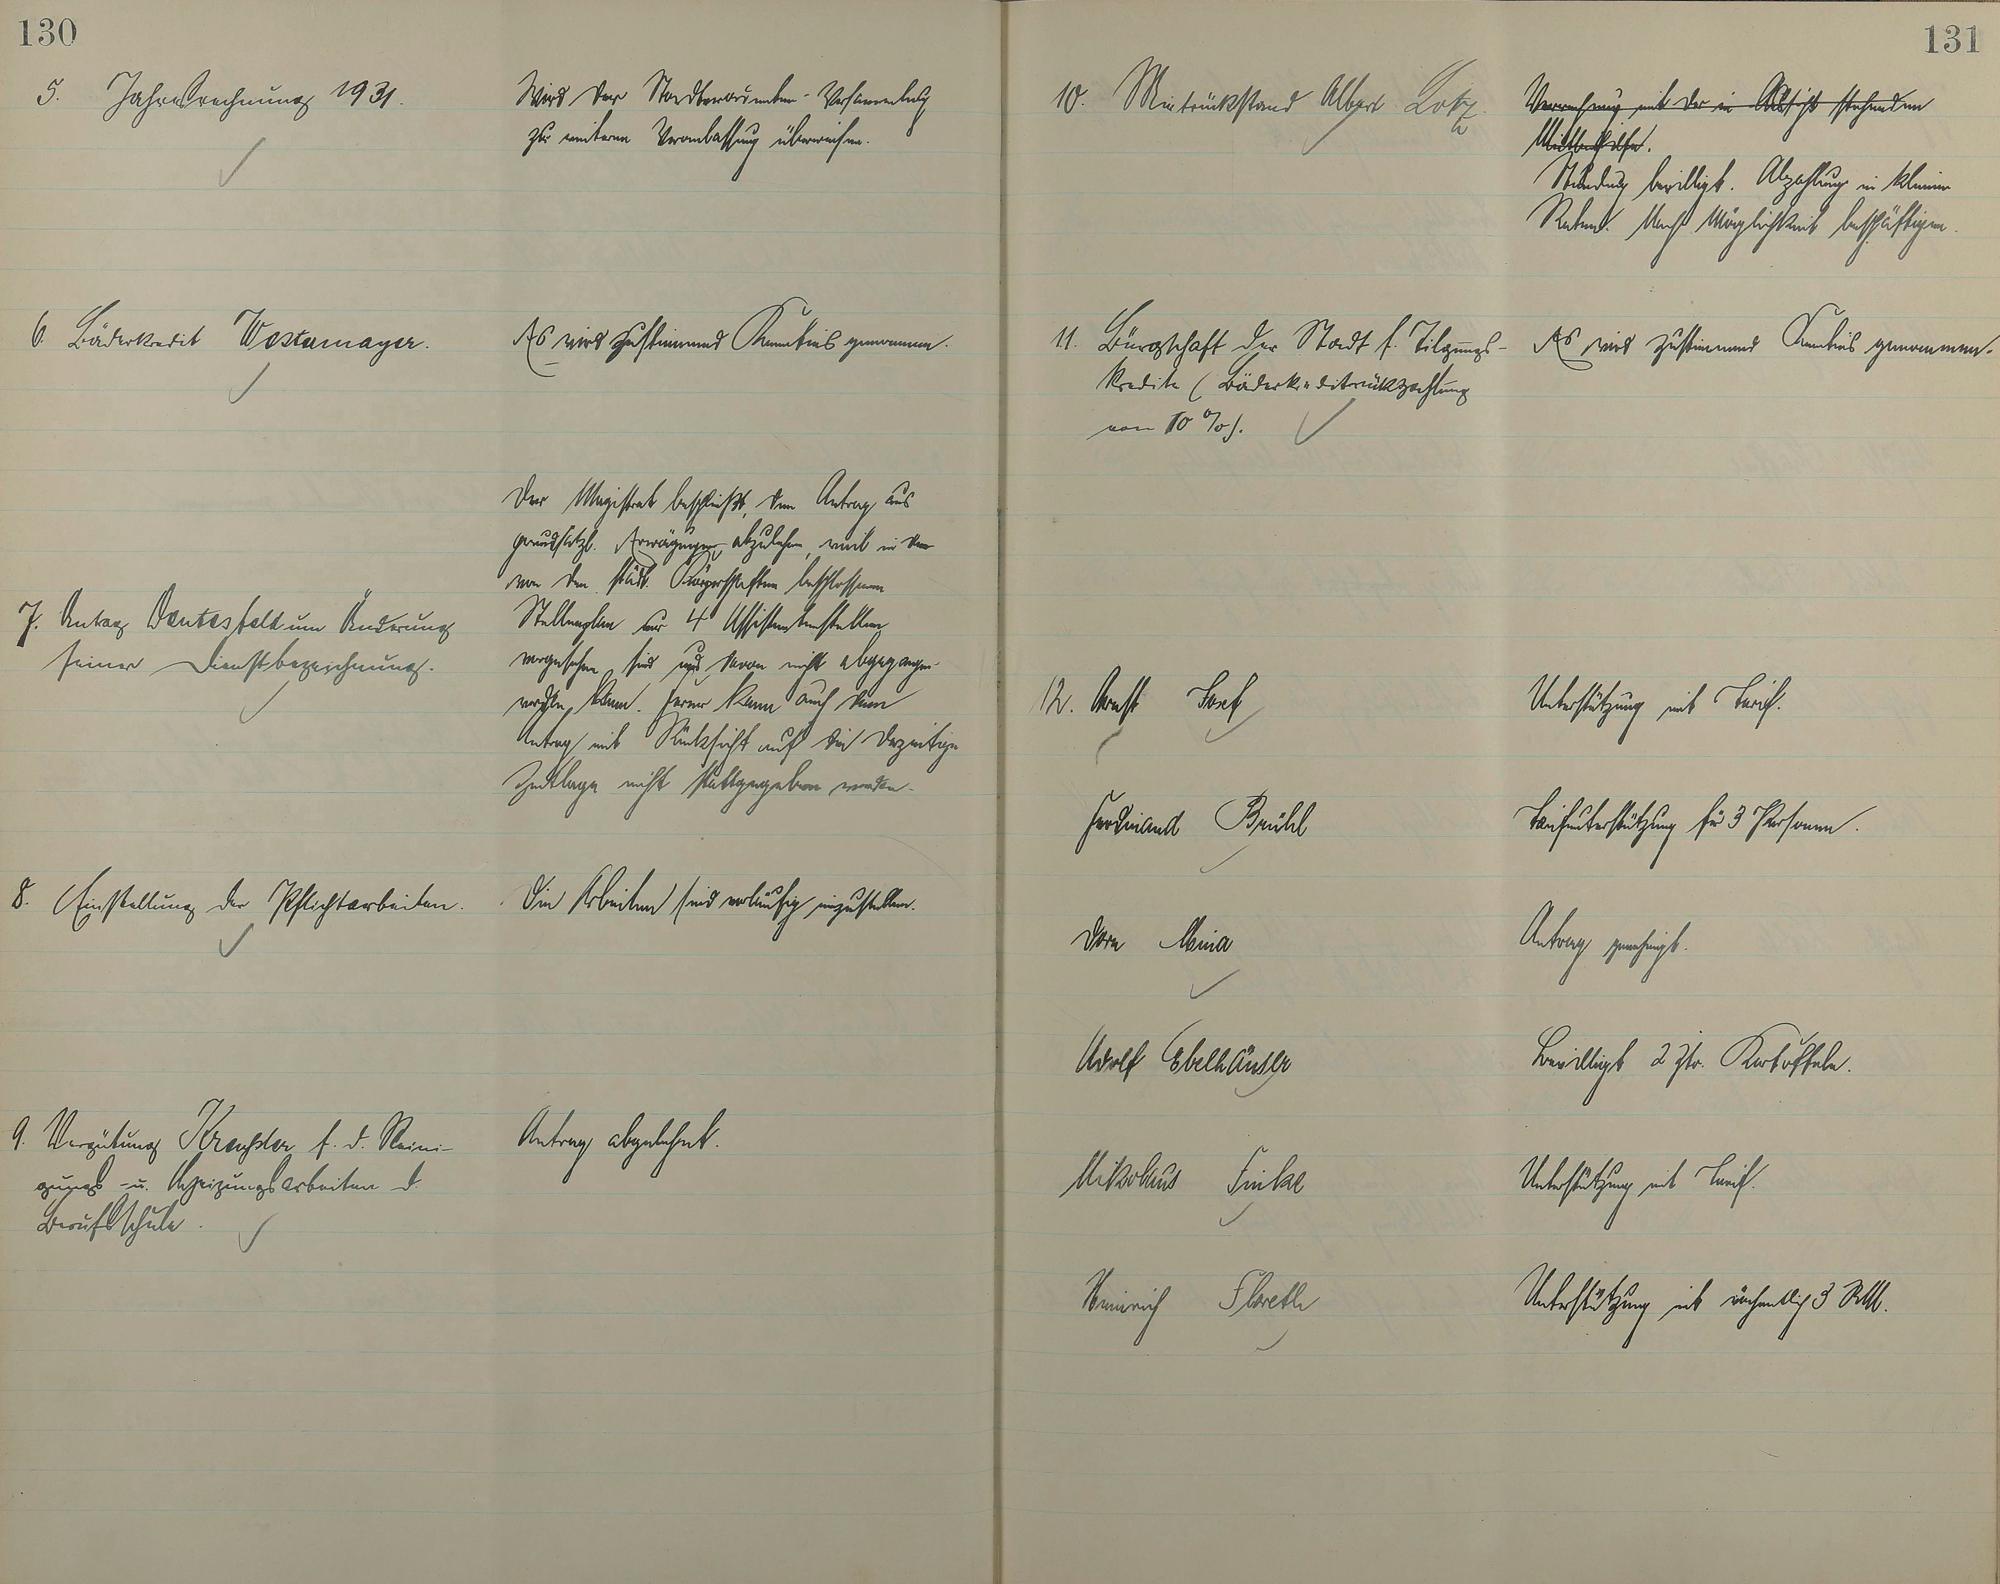 130
5. Jahresrechnung 1931.
Wird der Stadtverordneten-Versammlung
zur weiteren Veranlassung überwiesen.
6. Bäderkredit Westermayer.
Es wird zustimmend Kenntnis genommen.
7. Antrag Dantesfeld um Änderung
seiner Dienstbezeichnung.
Der Magistrat beschließt, den Antrag aus
grundsätzl. Erwägungen abzulehnen, weil in dem
von den städt. Körperschaften beschlossenen
Stellenplan nur 4 Assistentenstellen
vorgesehen sind und davon nicht abgegangen
werden kann. Ferner kann auch dem
Antrag mit Rücksicht auf die derzeitige
Zeitlage nicht stattgegeben werden.
8. Einstellung der Pflichtarbeiten.
Die Arbeiten sind vorläufig einzustellen.
9. Vergütung f. d. Reini-
gungs- u. Heizungsarbeiten d.
Berufsschule.
Antrag abgelehnt.
131
10. Mietrückstand Albert Lotz.
Verrechnung mit der in Aussicht stehenden
Stundung bewilligt. Abzahlung in kleinen
Raten. Nach Möglichkeit beschäftigen.
11. Bürgschaft der Stadt f. Tilgungs-
kredite (Bäderkreditrückzahlung
von 10 %).
Es wird zustimmend Kenntnis genommen.
12. Ernst Josef
Unterstützung mit Tarif.
Ferdinand Brühl
Tarifunterstützung für 3 Personen.
Dorn Maria
Antrag genehmigt.
Adolf Ebelhäuser
Bewilligt 2 Ztr. Kartoffeln.
Nikolaus Finke
Unterstützung mit Tarif.
Heinrich Floreth
Unterstützung mit wöchentlich 3 RM.